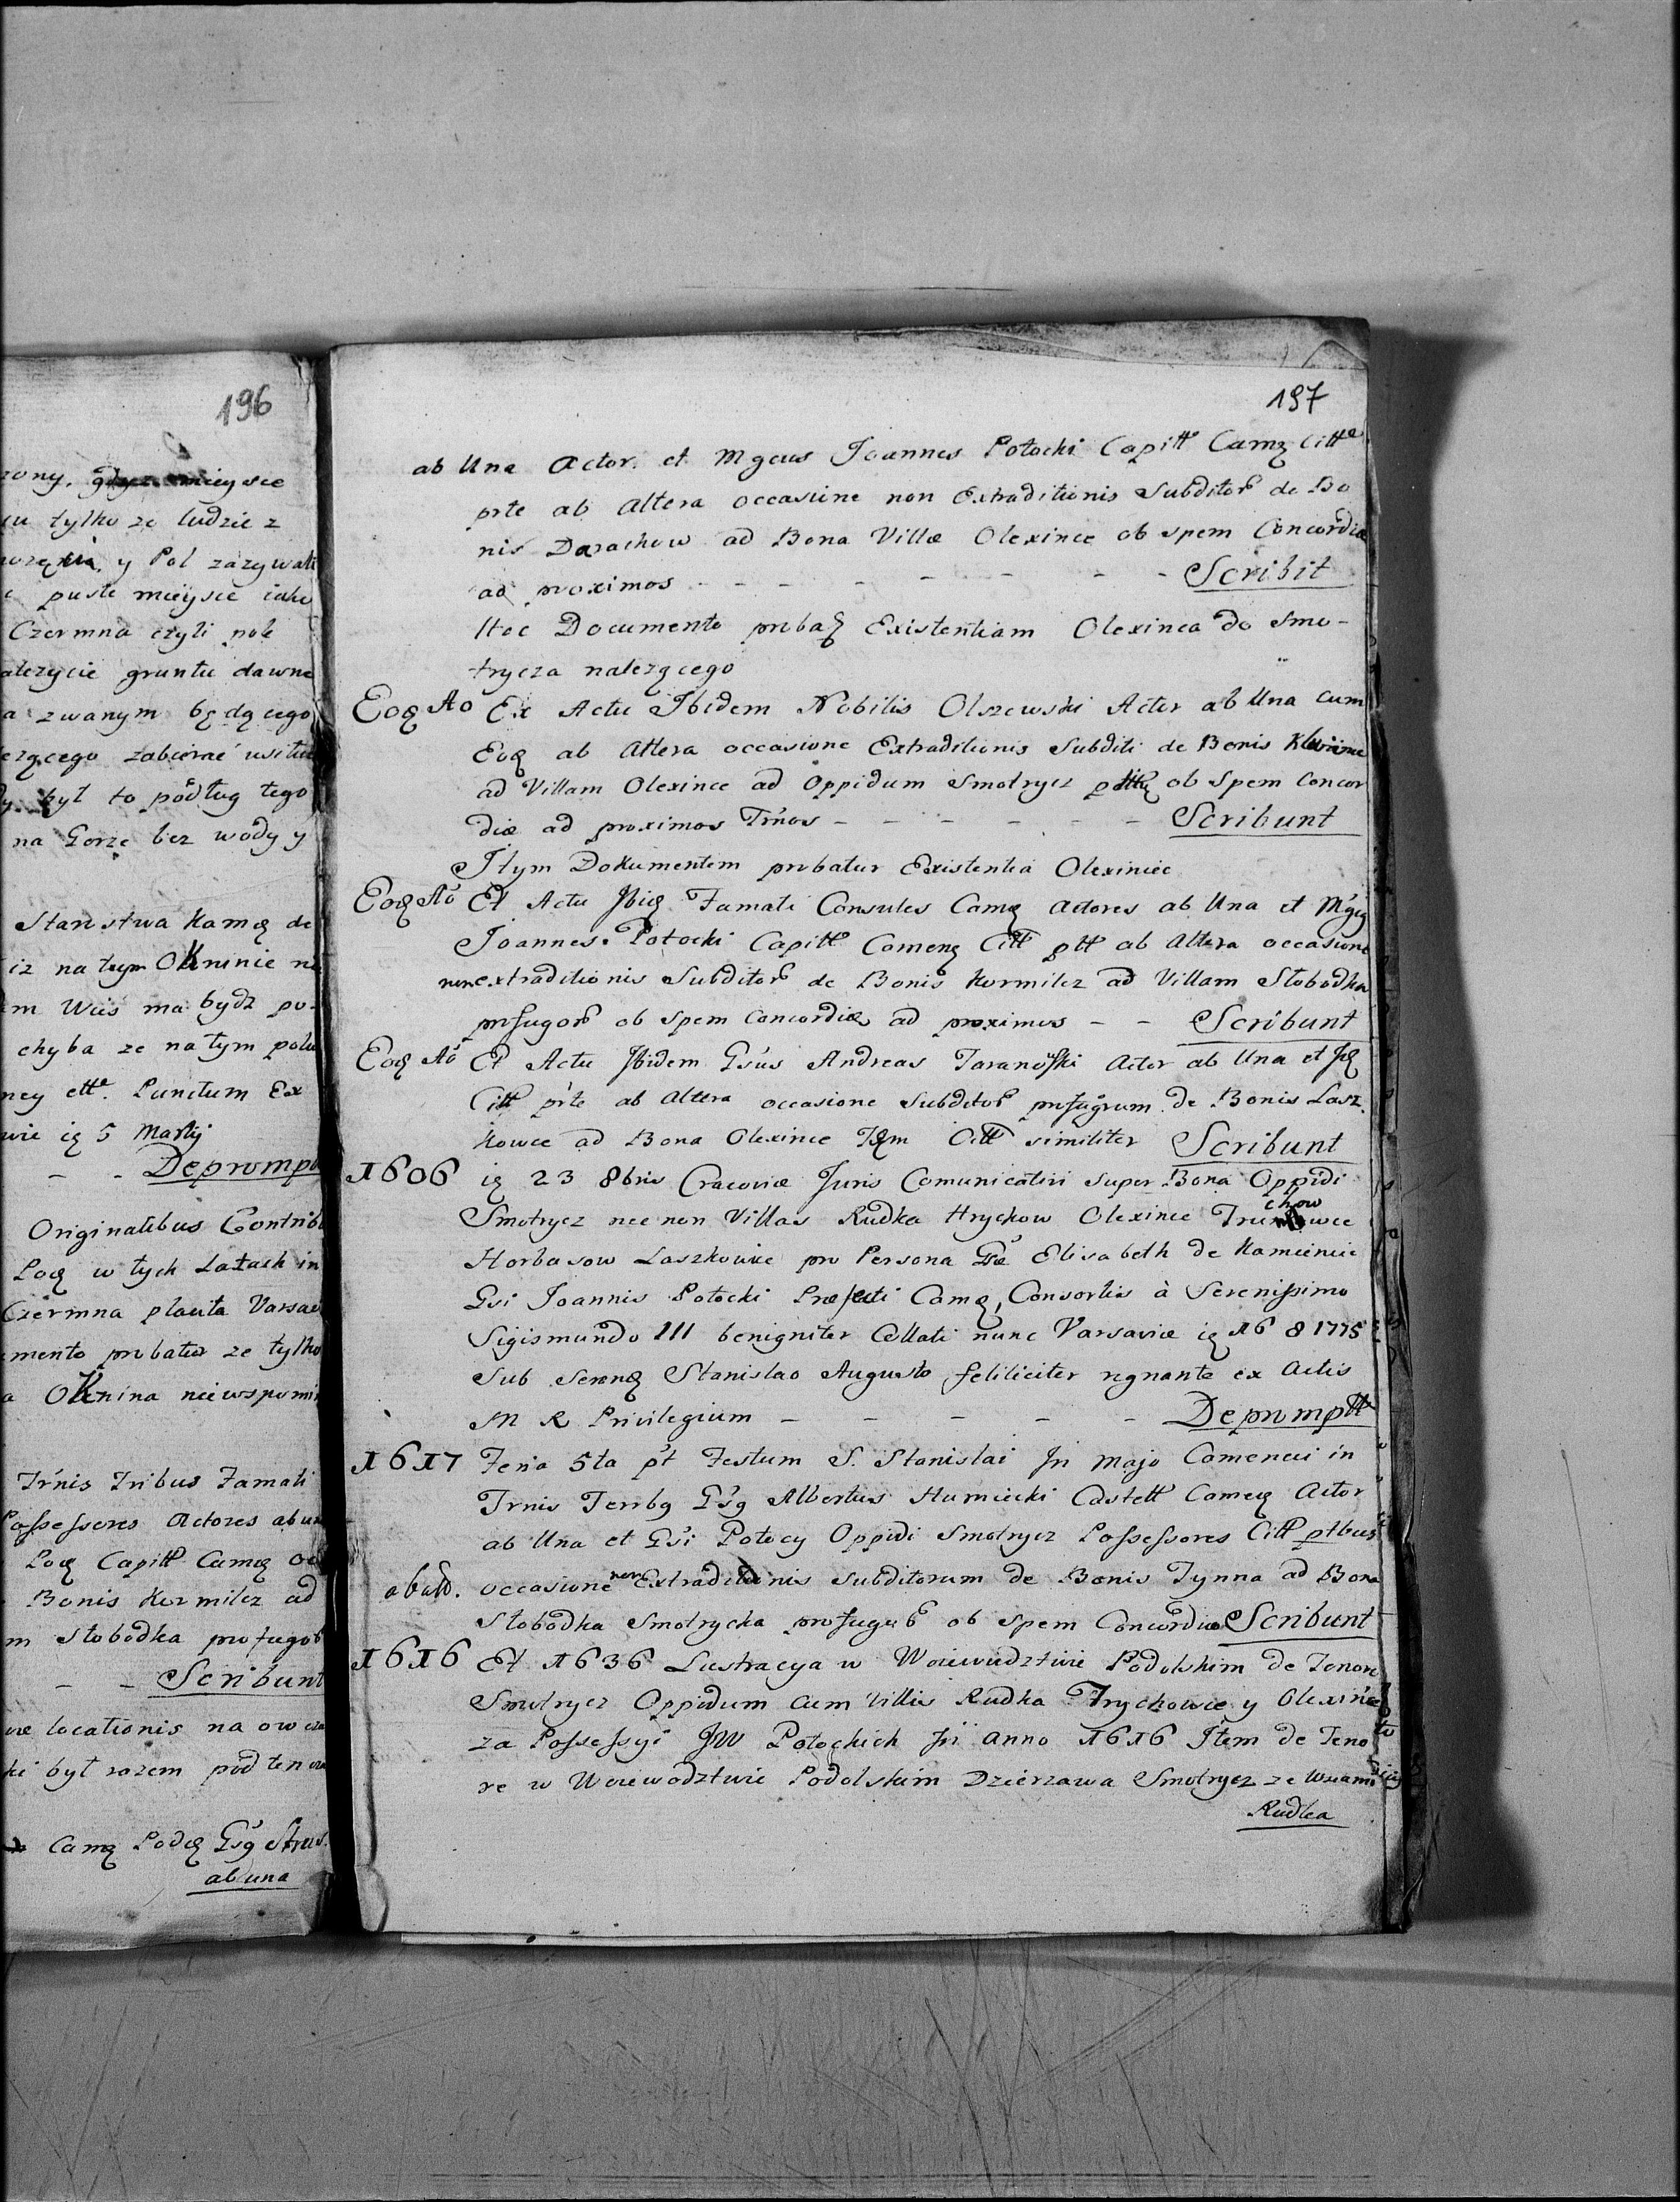 196
zony. gdyz mieysce
tylko ze ludzie z
y Pol zazywali
puste mieysce iako
Czermna czyli pole
gruntu dawne
a zwanym będącego
zabierać
był to podług tego
na Gorze bez wody y
Starostwa Kamȩ de
iz na tym OKninie
m Wieś ma bydz po-
chyba ze na tym polu
ney ette. Punctum Ex
5 Martij
- - Deprompt
Originalibus Contrib
w tych Latach in
Czermna
mento probatur ze tylko
a OKnina niewspomi
Trnis Tribus Famati
Possessores Actores ab
Capitt Camȩ
Bonis Kormilcz ad
m Słobodka profugor
- - Scribunt
locationis na
ki był razem pod ten
Camȩ Podȩ
ab una
197
ab Una Actor. et Mgcus Joannes Potocki Capitt Camȩ Citte
prte ab Altera occasione non Extraditionis Subditor de Bo
nis Darachow ad Bona Villæ Olexince ob spem Concordiæ
ad proximos - - - - - - - Scribit
Hoc Documento probaȩ Existentiam Olexinca do Smo-
trycza nalezącego
Eoȩ Ao Ex Actu Jbidem Nobilis Olszewski Actor ab Una cum
Eoȩ ab Altera occasione Extraditionis Subditi de Bonis
ad Villam Olexince ad Oppidum Smotrycz ob Spem Concor
diæ ad proximos Trnos - - - - - - Scribunt
Jtym Dokumentem probatur Existentia Olexiniec
Eoȩ Ao Et Actu Jbiȩ Famati Consules Camȩ Actores ab Una et
Joannes Potocki Capitt Camenȩ Citt ptt ab Altera occasione
non extraditionis Subditor de Bonis Kormilcz ad Villam Słobodka
profugor ob Spem Concordiæ ad proximos - - Scribunt
Eoȩ Ao Et Actu Jbidem Gsus Andreas Taranoski Actor ab Una et
Citt prte ab Altera occasione Subditor profugrum de Bonis Lasz.
kowce ad Bona Olexince Citt similiter Scribunt
1606 iȩ 23 8bris Cracoviæ Juris Comunicativi super Bona Oppidi
chow
Smotrycz nec non Villas Rudka Hrychow Olexince
Horbasow Laszkowce pro Persona Gsæ Elisabeth de Kamieniec
Gsi Joannis Potocki Præfecti Camȩ, Consortis à Serenissimo
Sigismundo III benigniter Collati nunc Varsaviæ iȩ 16 8 1775
Sub Serenȩ Stanislao Augusto feliliciter regnante ex Actis
M R Privilegium - - - - - Deprompttt
1617 Feria 5ta pt Festum S. Stanislai Jn Majo Camenecii in
Trnis Terrbg Gsg Albertus Humiecki Castell Camȩ Actor
ab Una et Gsi Potocy Oppidi Smotrycz Possessores Citt ptbus
ab Alt. occasione non Extraditionis Subditorum de Bonis Tynna ad Bona
Słobodka Smotrycka profugor ob spem Concordiæ Scribunt
1616 Et 1636 Lustracya w Woiewudztwie Podolskim de Tenore
Smotrycz Oppidum cum Villis Rudka Hrychowce y Olexince
za Possessyi JW Potockich Jn anno 1616 Jtem de Teno
re w Woiewodztwie Podolskim Dzierzawa Smotrycz ze Wsiami
Rudka